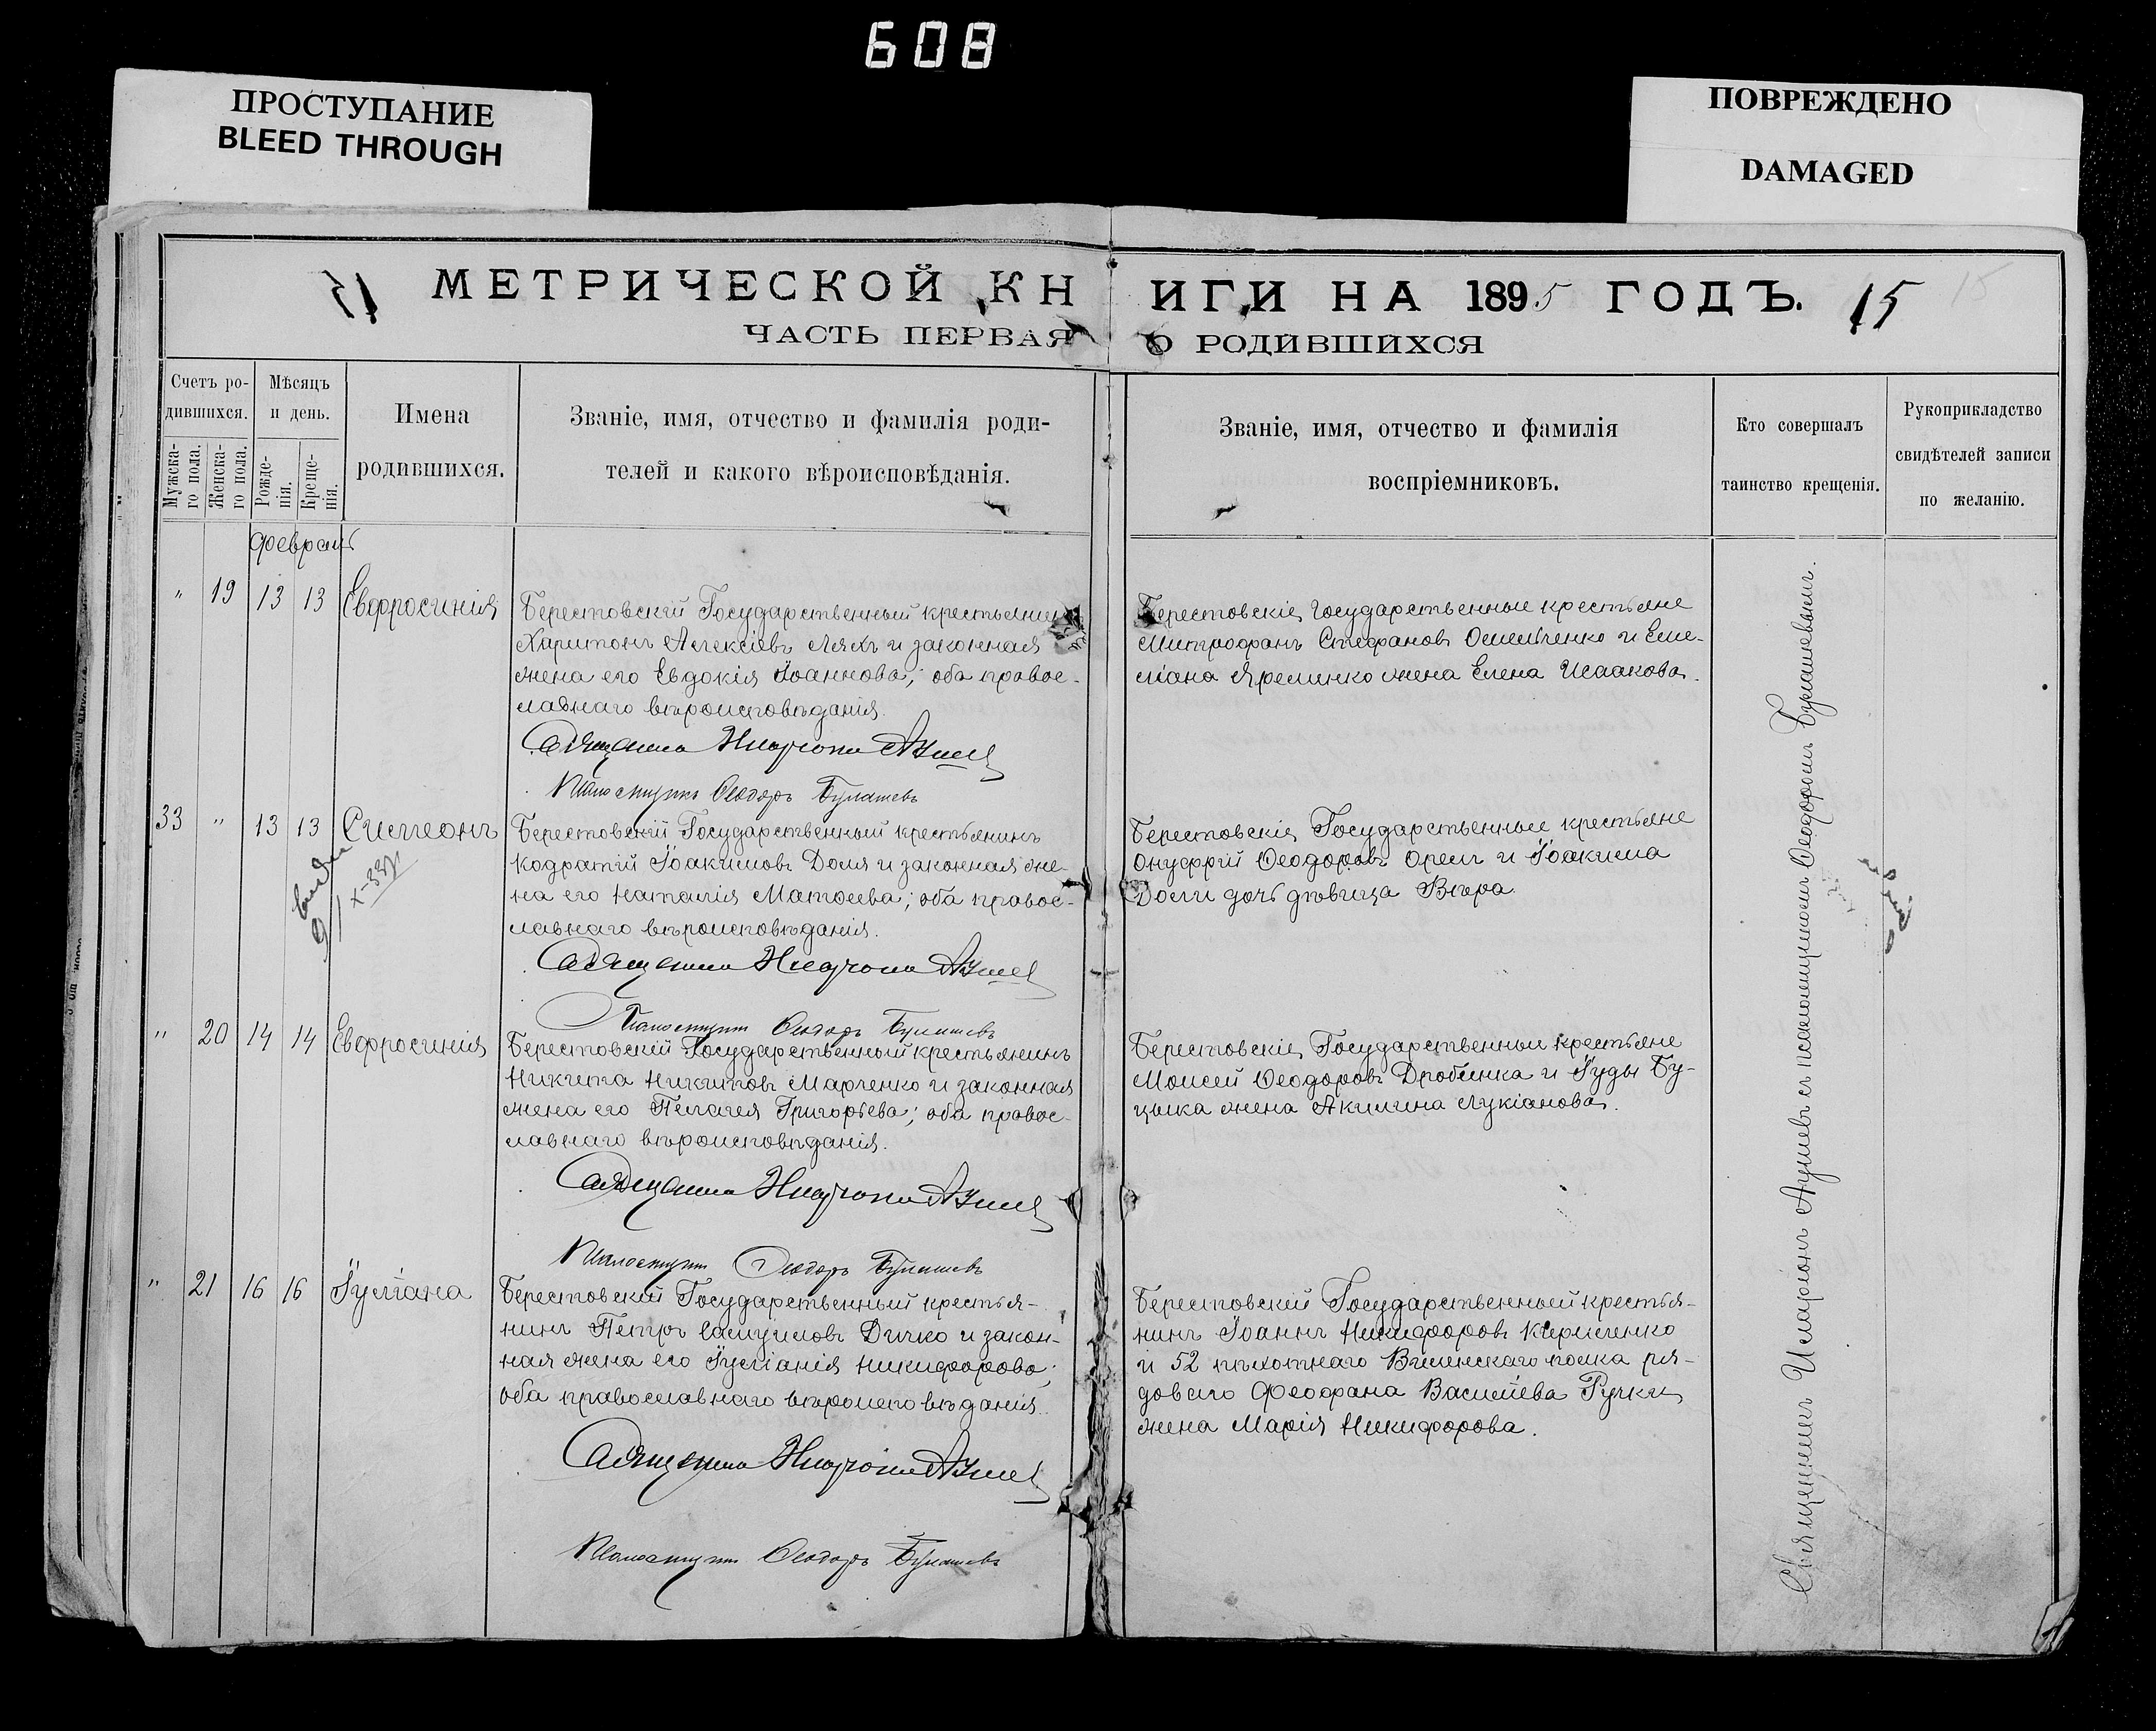 608
ПРОСТУПАНИЕ
BLEED THROUGH
ПОВРЕЖДЕНО
DAMAGED
МЕТРИЧЕСКОЙ КНИГИ НА 1895 ГОДЪ. 15
15
ЧАСТЬ ПЕРВАЯ О РОДИВШИХСЯ
Счетъ ро-
дившихся.
Мужска-
го пола.
Женска-
го пола.
Мѣсяцъ
и день.
Рожде-
нія.
Креще-
нія.
Имена
родившихся.
Званіе, имя, отчество и фамилія роди-
телей и какого вѣроисповѣданія.
Званіе, имя, отчество и фамилія
воспріемниковъ.
Кто совершалъ
таинство крещенія.
Рукоприкладство
свидѣтелей записи
по желанію.
Февраль
" 19 13 13 Евфросинія
Берестовскій Государственный крестьянинъ
Харитонъ Алексіевъ Ляхъ и законная
жена его Евдокія Іоаннова; оба правос-
лавнаго вѣроисповѣданія.
Священникъ Иларіонъ
Псаломщикъ Ѳеодоръ Булашевъ
Берестовскіе Государственные крестьяне
Митрофанъ Стефановъ и Еме-
ліана Яременко жена Елена Исаакова.
33 " 13 13 Симеонъ
Берестовскій Государственный крестьянинъ
Кодратій Іоакимовъ Доля и законная же-
на его Наталія Матѳеева; оба правос-
лавнаго вѣроисповѣданія.
Священникъ Иларіонъ
Псаломщикъ Ѳеодоръ Булашевъ
Берестовскіе Государственные крестьяне
Онуфрій Ѳеодоровъ Орелъ и Іоакима
Доли дочь дѣвица Вѣра
" 20 14 14 Евфросинія
Берестовскій Государственный крестьянинъ
Никита Никитовъ Марченко и законная
жена его Пелагея Григорьева; оба правос-
лавнаго вѣроисповѣданія.
Священникъ Иларіонъ
Псаломщикъ Ѳеодоръ Булашевъ
Берестовскіе Государственные крестьяне
Моисей Ѳеодоровъ Дробинка и Іуды Бу-
цыка жена Акилина Лукіанова.
" 21 16 16 Іуліана
Берестовскій Государственный крестья-
нинъ Петръ Самуиловъ Дичко и закон-
ная жена его Іуліанія Никифорова;
оба православнаго вѣроисповѣданія.
Священникъ Иларіонъ
Псаломщикъ Ѳеодоръ Булашевъ
Берестовскій Государственный крестья-
нинъ Іоаннъ Никифоровъ Кириченко
и 52 пѣхотнаго Виленскаго полка ря-
доваго Феофана Василіева Ручки
жена Марія Никифорова.
Священникъ Иларіонъ съ псаломщикомъ Ѳеодоромъ Булашевымъ.